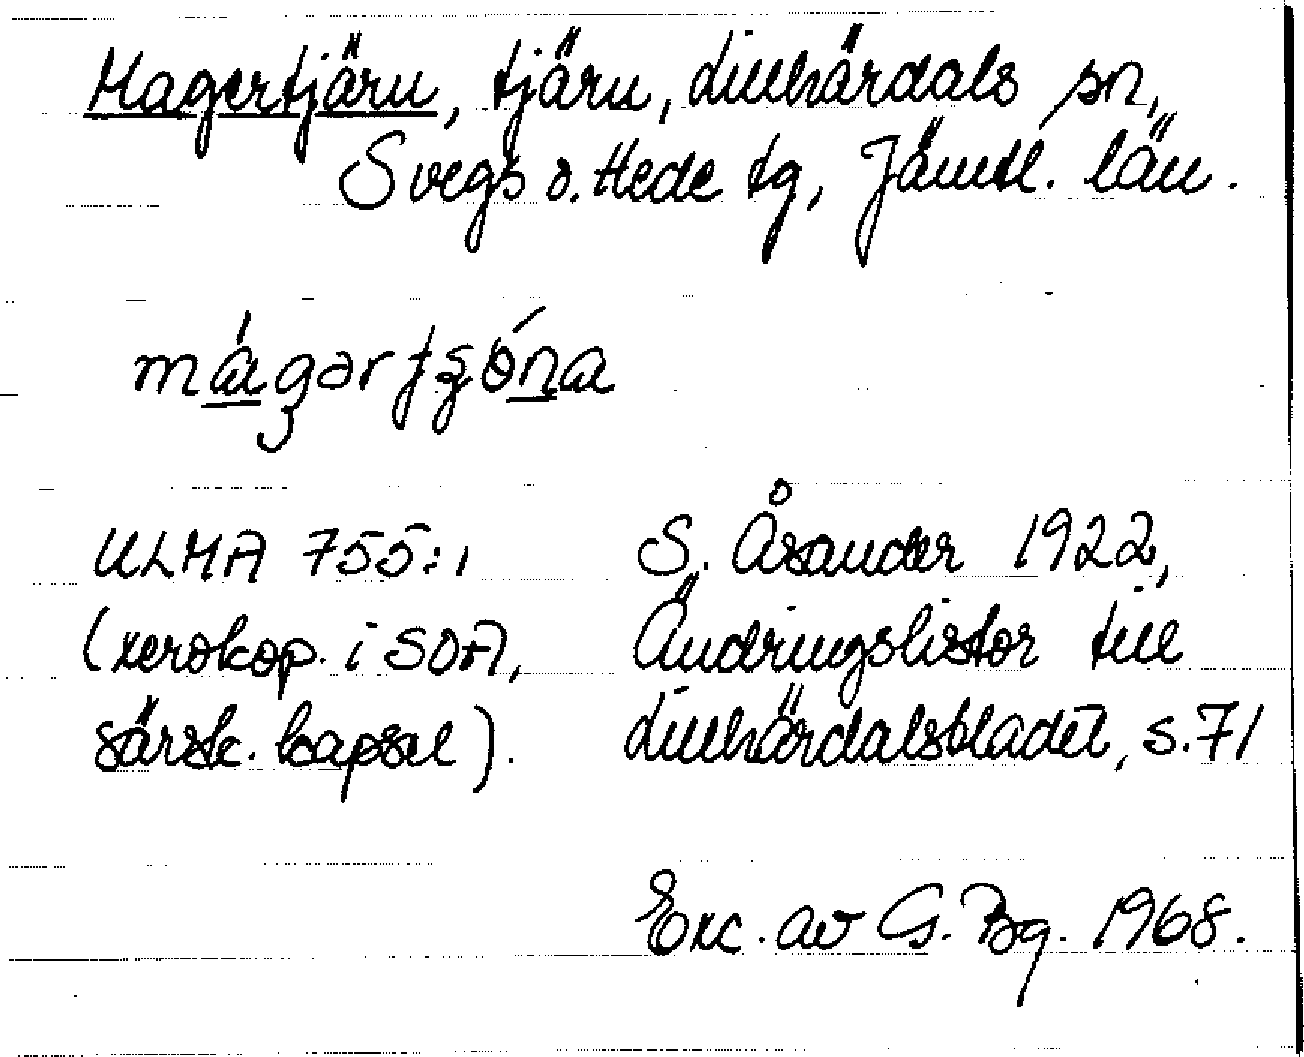 Magertjärn, tjärn, Lillhärdals sn,
Svegs o. Hede tg, Jämtl. län.
mágərtʂǿna
ULMA 755:1
(xerokop. i SOA,
särsk. kapsel).
S. Åsander 1922,
Ändringslistor till
Lillhärdalsbladet, s. 71
Exc. av G. Bg. 1968.